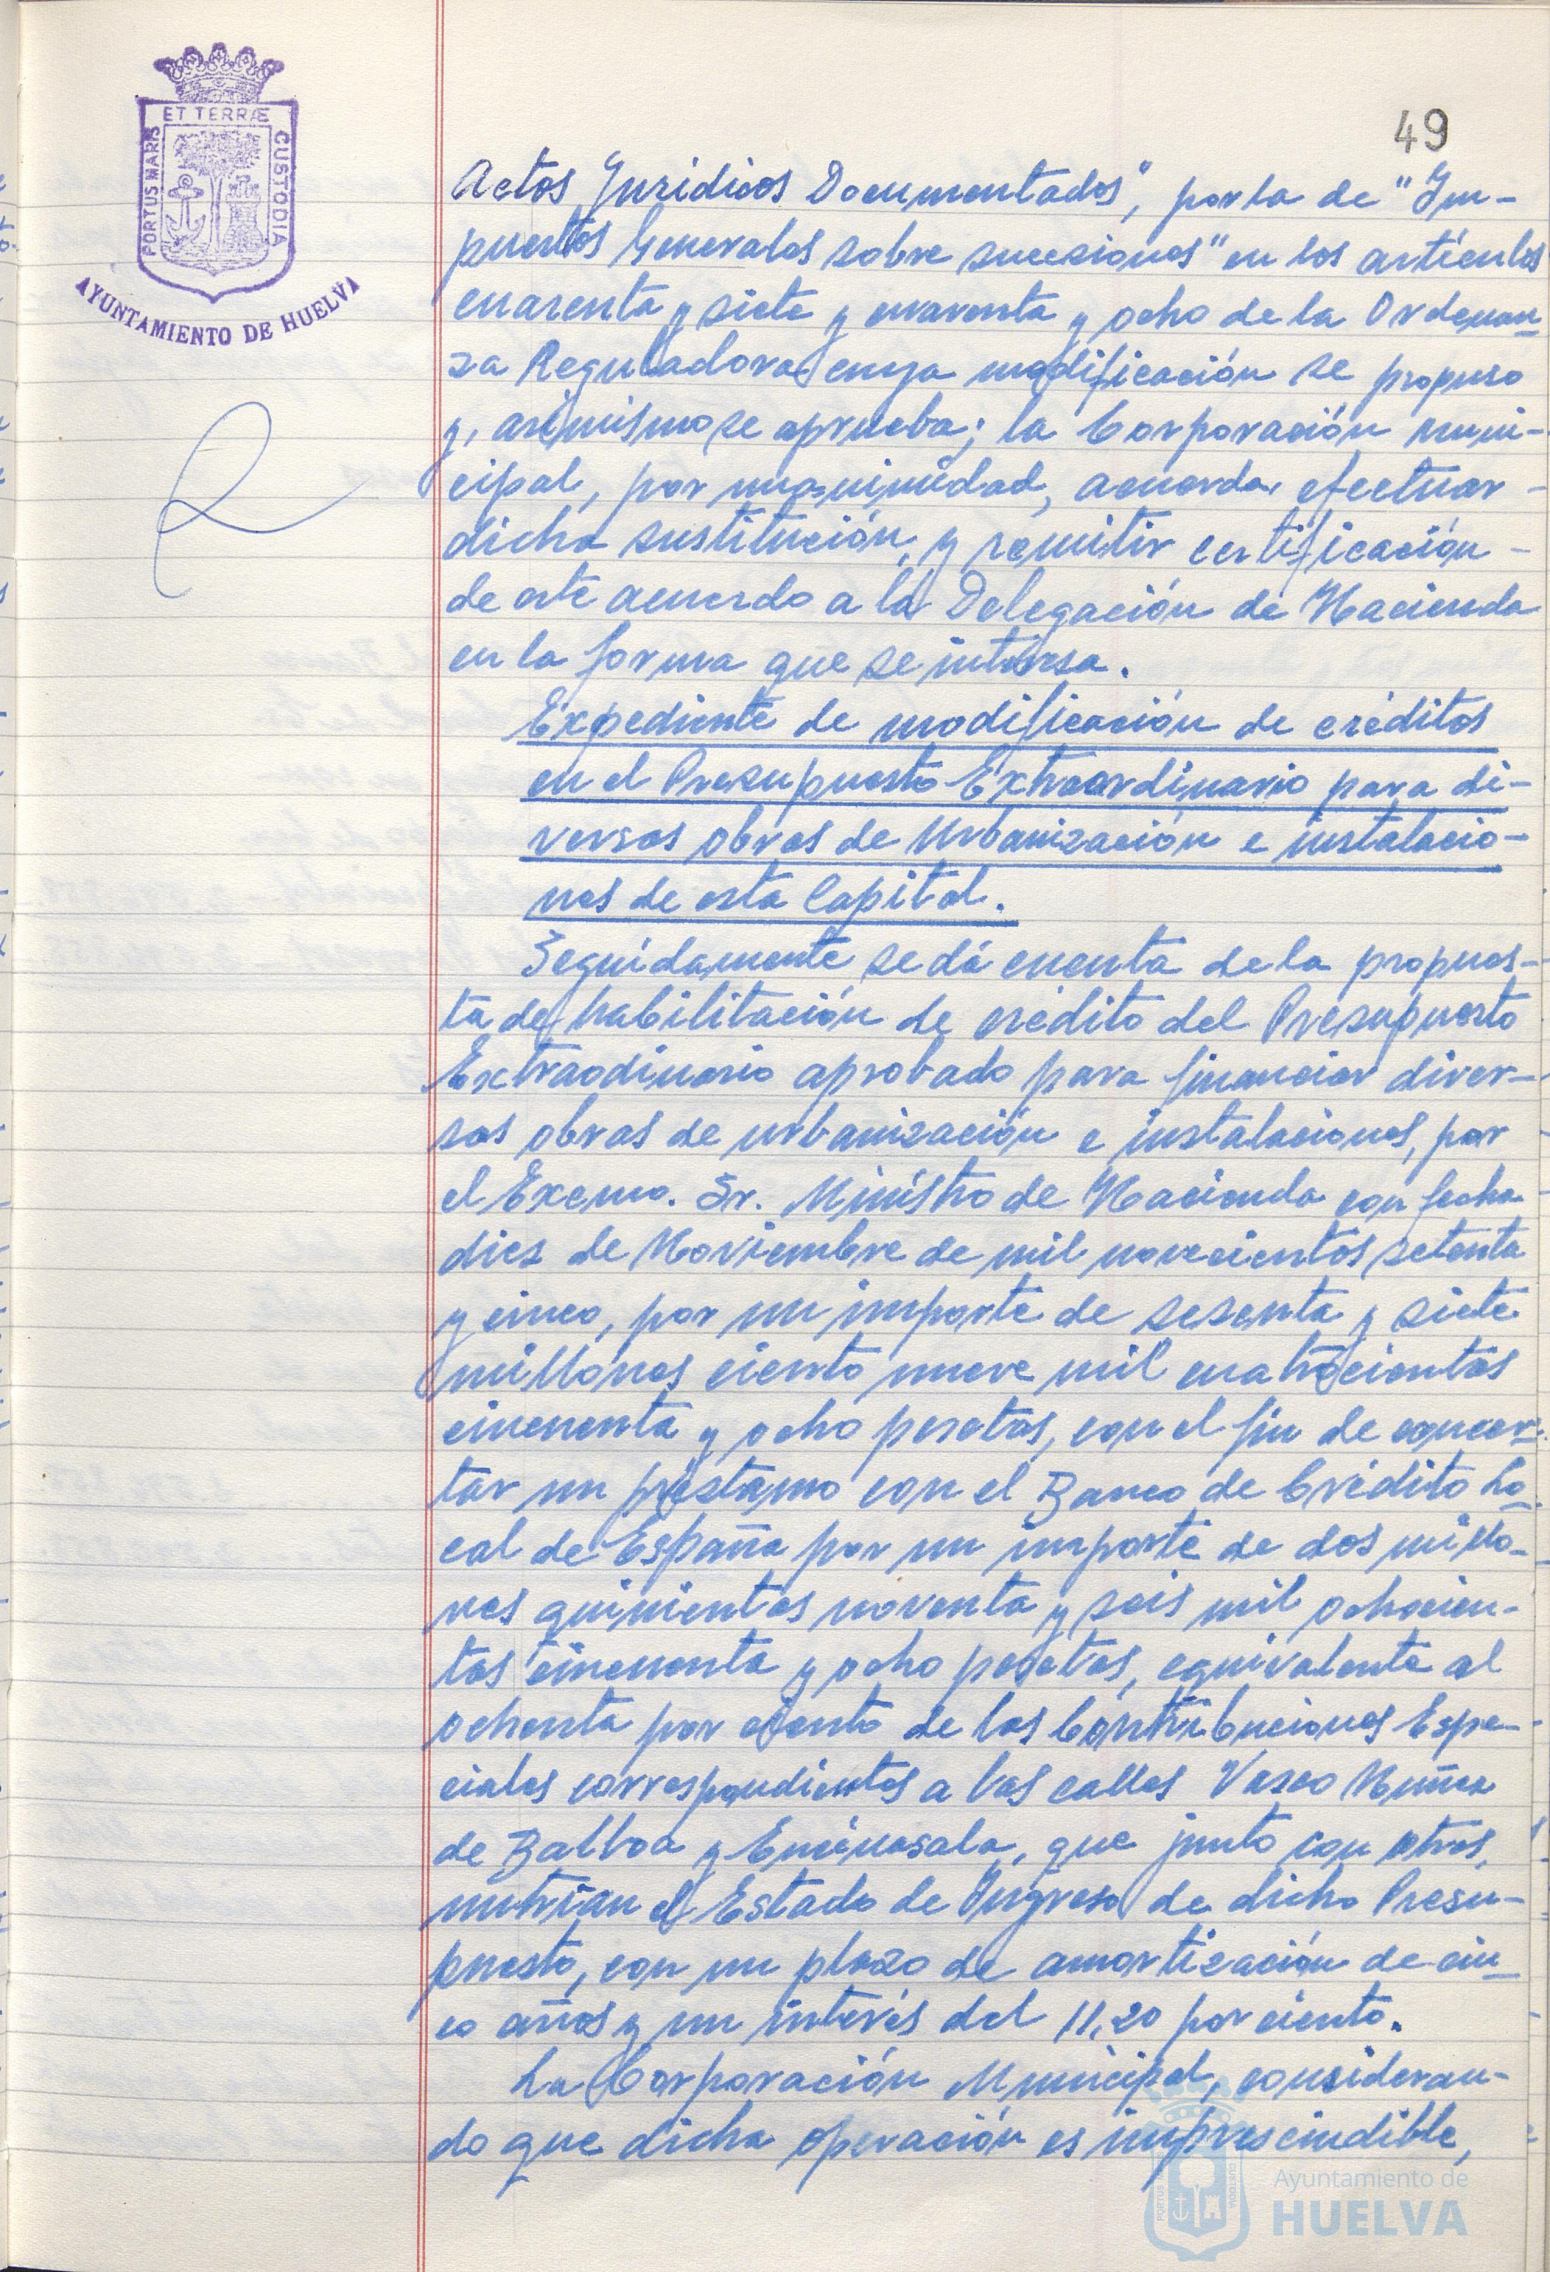 49
ET TERRÆ
PORTUS MARIS
CUSTODIA
AYUNTAMIENTO DE HUELVA
Actos Jurídicos Documentados", por la de "Im-
puestos Generales sobre sucesiones" en los artículos
cuarenta y siete y cuarenta y ocho de la Ordenan-
za Reguladora cuya modificación se propuso
y, asimismo se aprueba; la Corporación muni-
cipal, por unanimidad, acuerda efectuar
dicha sustitución, y remitir certificación
de este acuerdo a la Delegación de Hacienda
en la forma que se interesa.
Expediente de modificación de créditos
en el Presupuesto Extraordinario para di-
versas obras de Urbanización e instalacio-
nes de esta Capital.
Seguidamente se dá cuenta de la propues-
ta de habilitación de crédito del Presupuesto
Extraodinario aprobado para financiar diver-
sas obras de urbanización e instalaciones, por
el Excmo. Sr. Ministro de Hacienda con fecha
diez de Noviembre de mil novecientos setenta
y cinco, por un importe de sesenta y siete
millones ciento nueve mil cuatrocientas
cincuenta y ocho pesetas, con el fin de concer-
tar un préstamo con el Banco de Crédito Lo-
cal de España por un importe de dos millo-
nes quinientas noventa y seis mil ochocien-
tas cincuenta y ocho pesetas, equivalente al
ochenta por ciento de las Contribuciones Espe-
ciales correspondientes a las calles Vasco Nuñez
de Balboa y Encinasola, que junto con otras,
nutrían el Estado de Ingreso de dicho Presu-
puesto, con un plazo de amortización de cin-
co años y un interés del 11,20 por ciento.
La Corporación Municipal, consideran-
do que dicha operación es imprescindible,
Ayuntamiento de
HUELVA